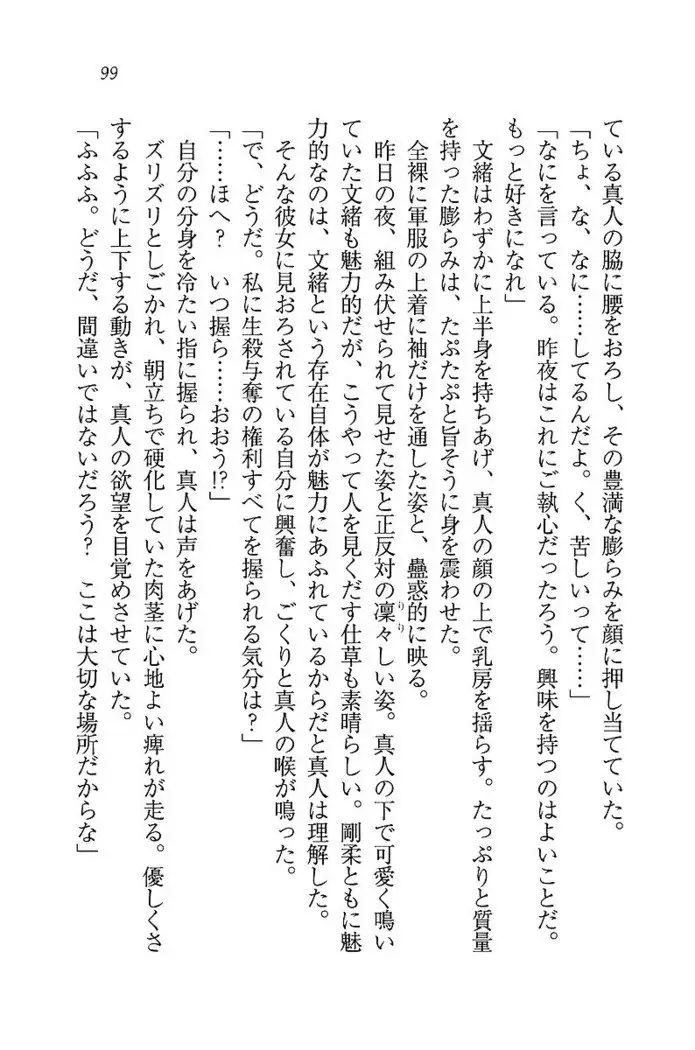 99
ている真人の脇に腰をおろし、その豊満な膨らみを顔に押し当てていた。
「ちょ、な、なに……してるんだよ。く、苦しいって……」
「なにを言っている。昨夜はこれにご執心だったろう。興味を持つのはよいことだ。
もっと好きになれ」
文緒はわずかに上半身を持ちあげ、真人の顔の上で乳房を揺らす。たっぷりと質量
を持った膨らみは、たぷたぷと旨そうに身を震わせた。
全裸に軍服の上着に袖だけを通した姿と、蠱惑的に映る。
昨日の夜、組み伏せられて見せた姿と正反対の凜々しい姿。真人の下で可愛く鳴い
ていた文緒も魅力的だが、こうやって人を見くだす仕草も素晴らしい。剛柔ともに魅
力的なのは、文緒という存在自体が魅力にあふれているからだと真人は理解した。
そんな彼女に見おろされている自分に興奮し、ごくりと真人の喉が鳴った。
「で、どうだ。私に生殺与奪の権利すべてを握られる気分は?」
「……ほへ? いつ握ら……おおう!?」
自分の分身を冷たい指に握られ、真人は声をあげた。
ズリズリとしごかれ、朝立ちで硬化していた肉茎に心地よい痺れが走る。優しくさ
するように上下する動きが、真人の欲望を目覚めさせていた。
「ふふふ。どうだ、間違いではないだろう? ここは大切な場所だからな」